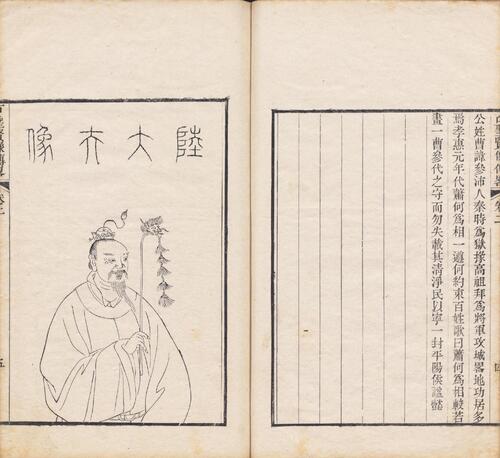 古聖賢像傳畧 卷二
四
公姓曹諱參沛人秦時爲獄掾高祖拜爲將軍攻城畧地功居多
焉孝惠元年代蕭何爲相一遵何約束百姓歌曰蕭何爲相較若
畫一曹參代之守而勿失載其清淨民以寧一封平陽侯謚懿
陸大夫像
卷二
五